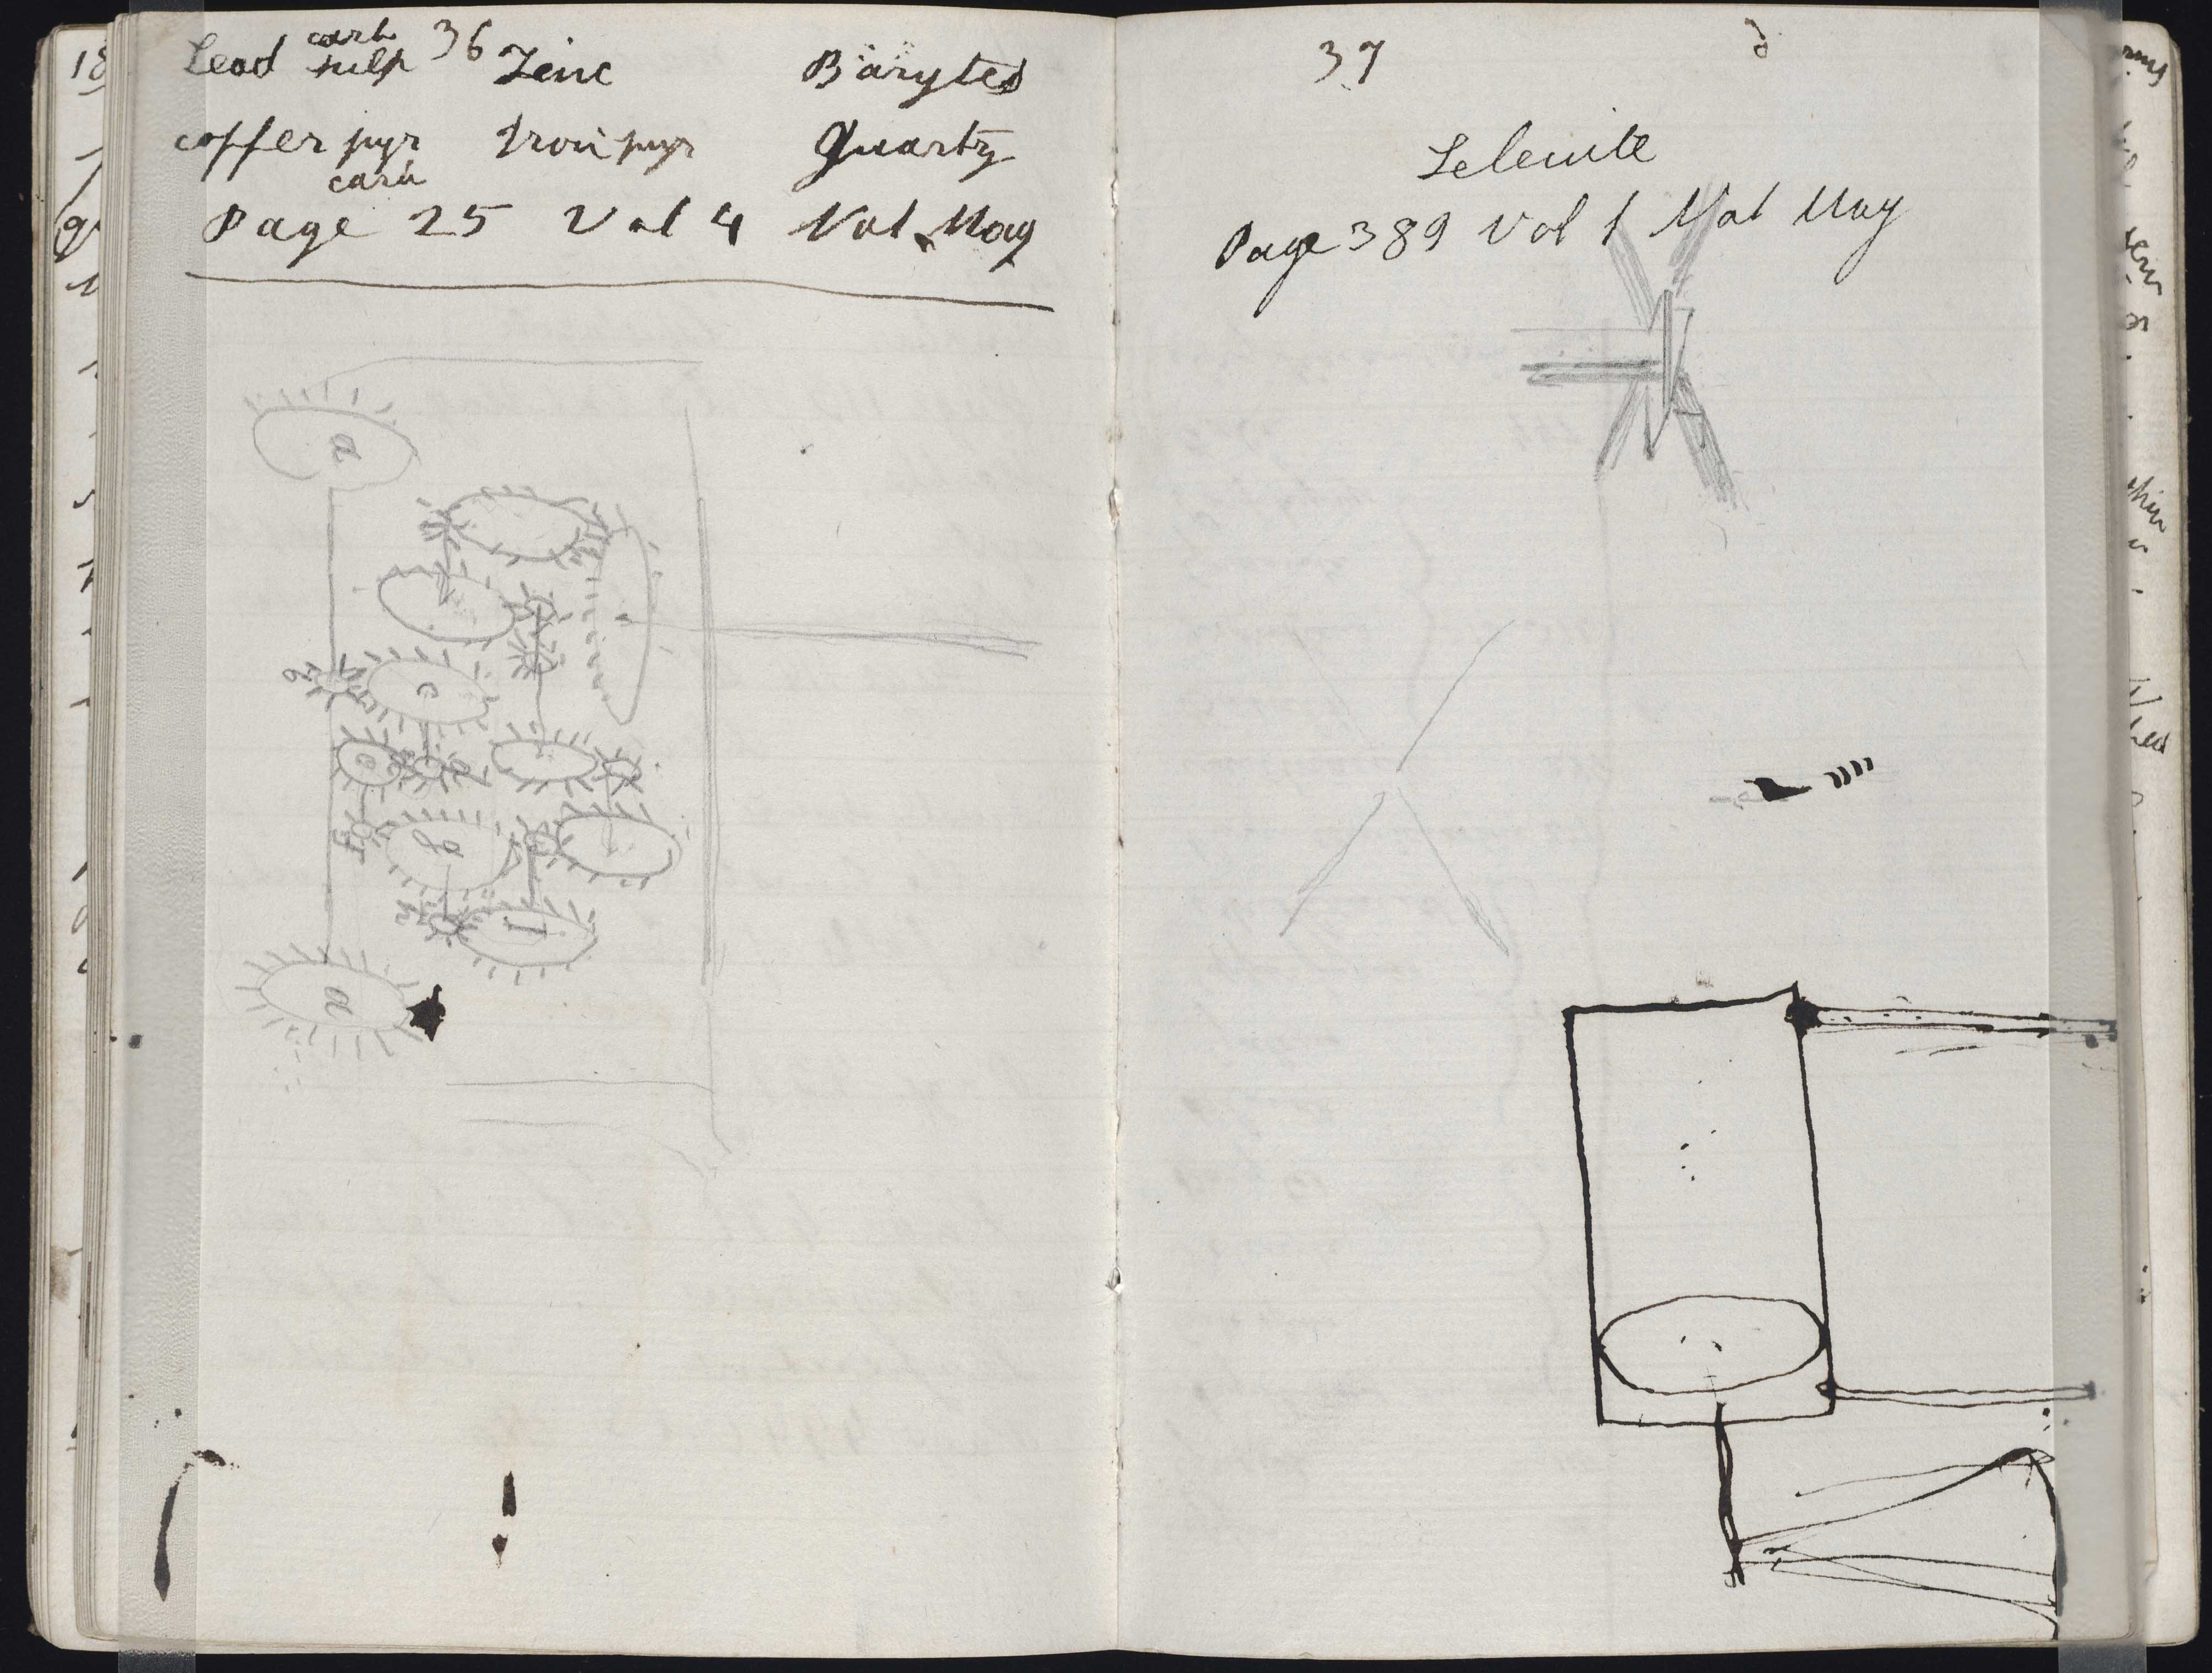 36
Lead carb sulp Zinc Barytes
copper pyr carb Iron pyr Quartz
Page 25 Vol 4 Nat Mag
a
b
c
e
d
f
g
h
I
a
37
Selenite
Page 389 Vol 1 Nat Mag